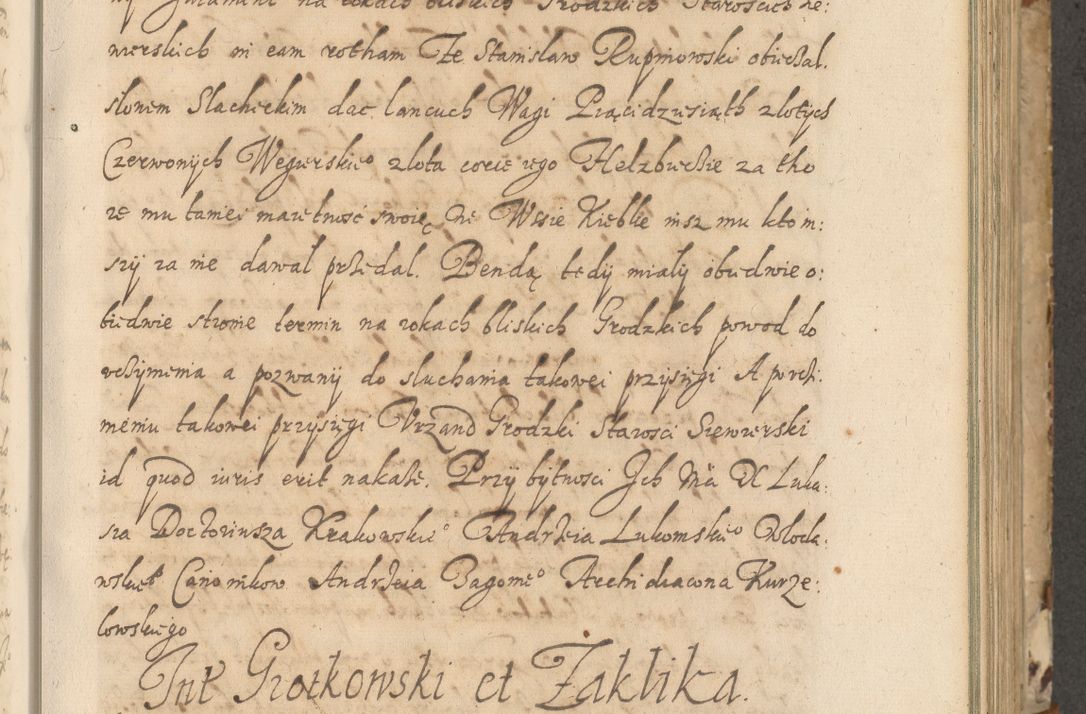 ny Jurament na rokach bliskich Grodzkich Staroscich Sie:
wierskich in eam rotham Ze Stanislaw Rupniowski obieczal.
slonem Slacheckim dac lancuch Wagi Piącidzesiąth zlotych
Czerwonych Węgierskieo zlota corce iego Helzbieczie za tho
ze mu taniei maietnosc swoię We Wsie Kieblie nisz mu kto in:
szy za nie dawal przedal. Bendą tedy mialy obiedwie o:
biedwie stronie termin na rokach bliskich Grodzkich powod do
uczynienia a pozwany do sluchania takowei przysięgi A po uczi:
nieniu takowei przysięgi Vrzand Grodzki Starosci Siewierski
id quod iuris erit nakaże. Przy bytnosci Ich Mci X Luka:
sza Doctoriusza Krakowskio Andrzeia Lukomskieo Wloda:
wskieo Canonikow Andrzeia Zagorneo Archidiacona Kurze:
lowskiego
Int Grotkowski et Zaklika.